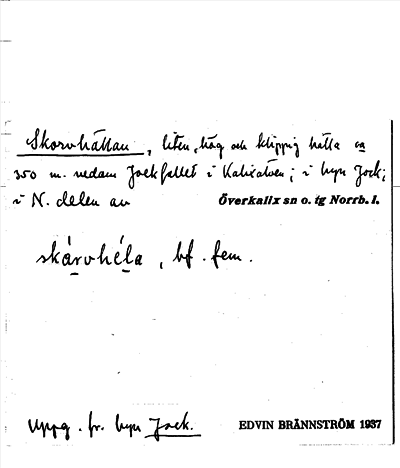 Skorvhällan, liten, hög och klippig hälla ca
350 m. nedom Jockfallet i Kalixälven; i byn Jock;
i N. delen av Överkalix sn o. tg Norrb. l.
skárvhéla, bf. fem.
Uppg. fr. byn Jock. EDVIN BRÄNNSTRÖM 1937